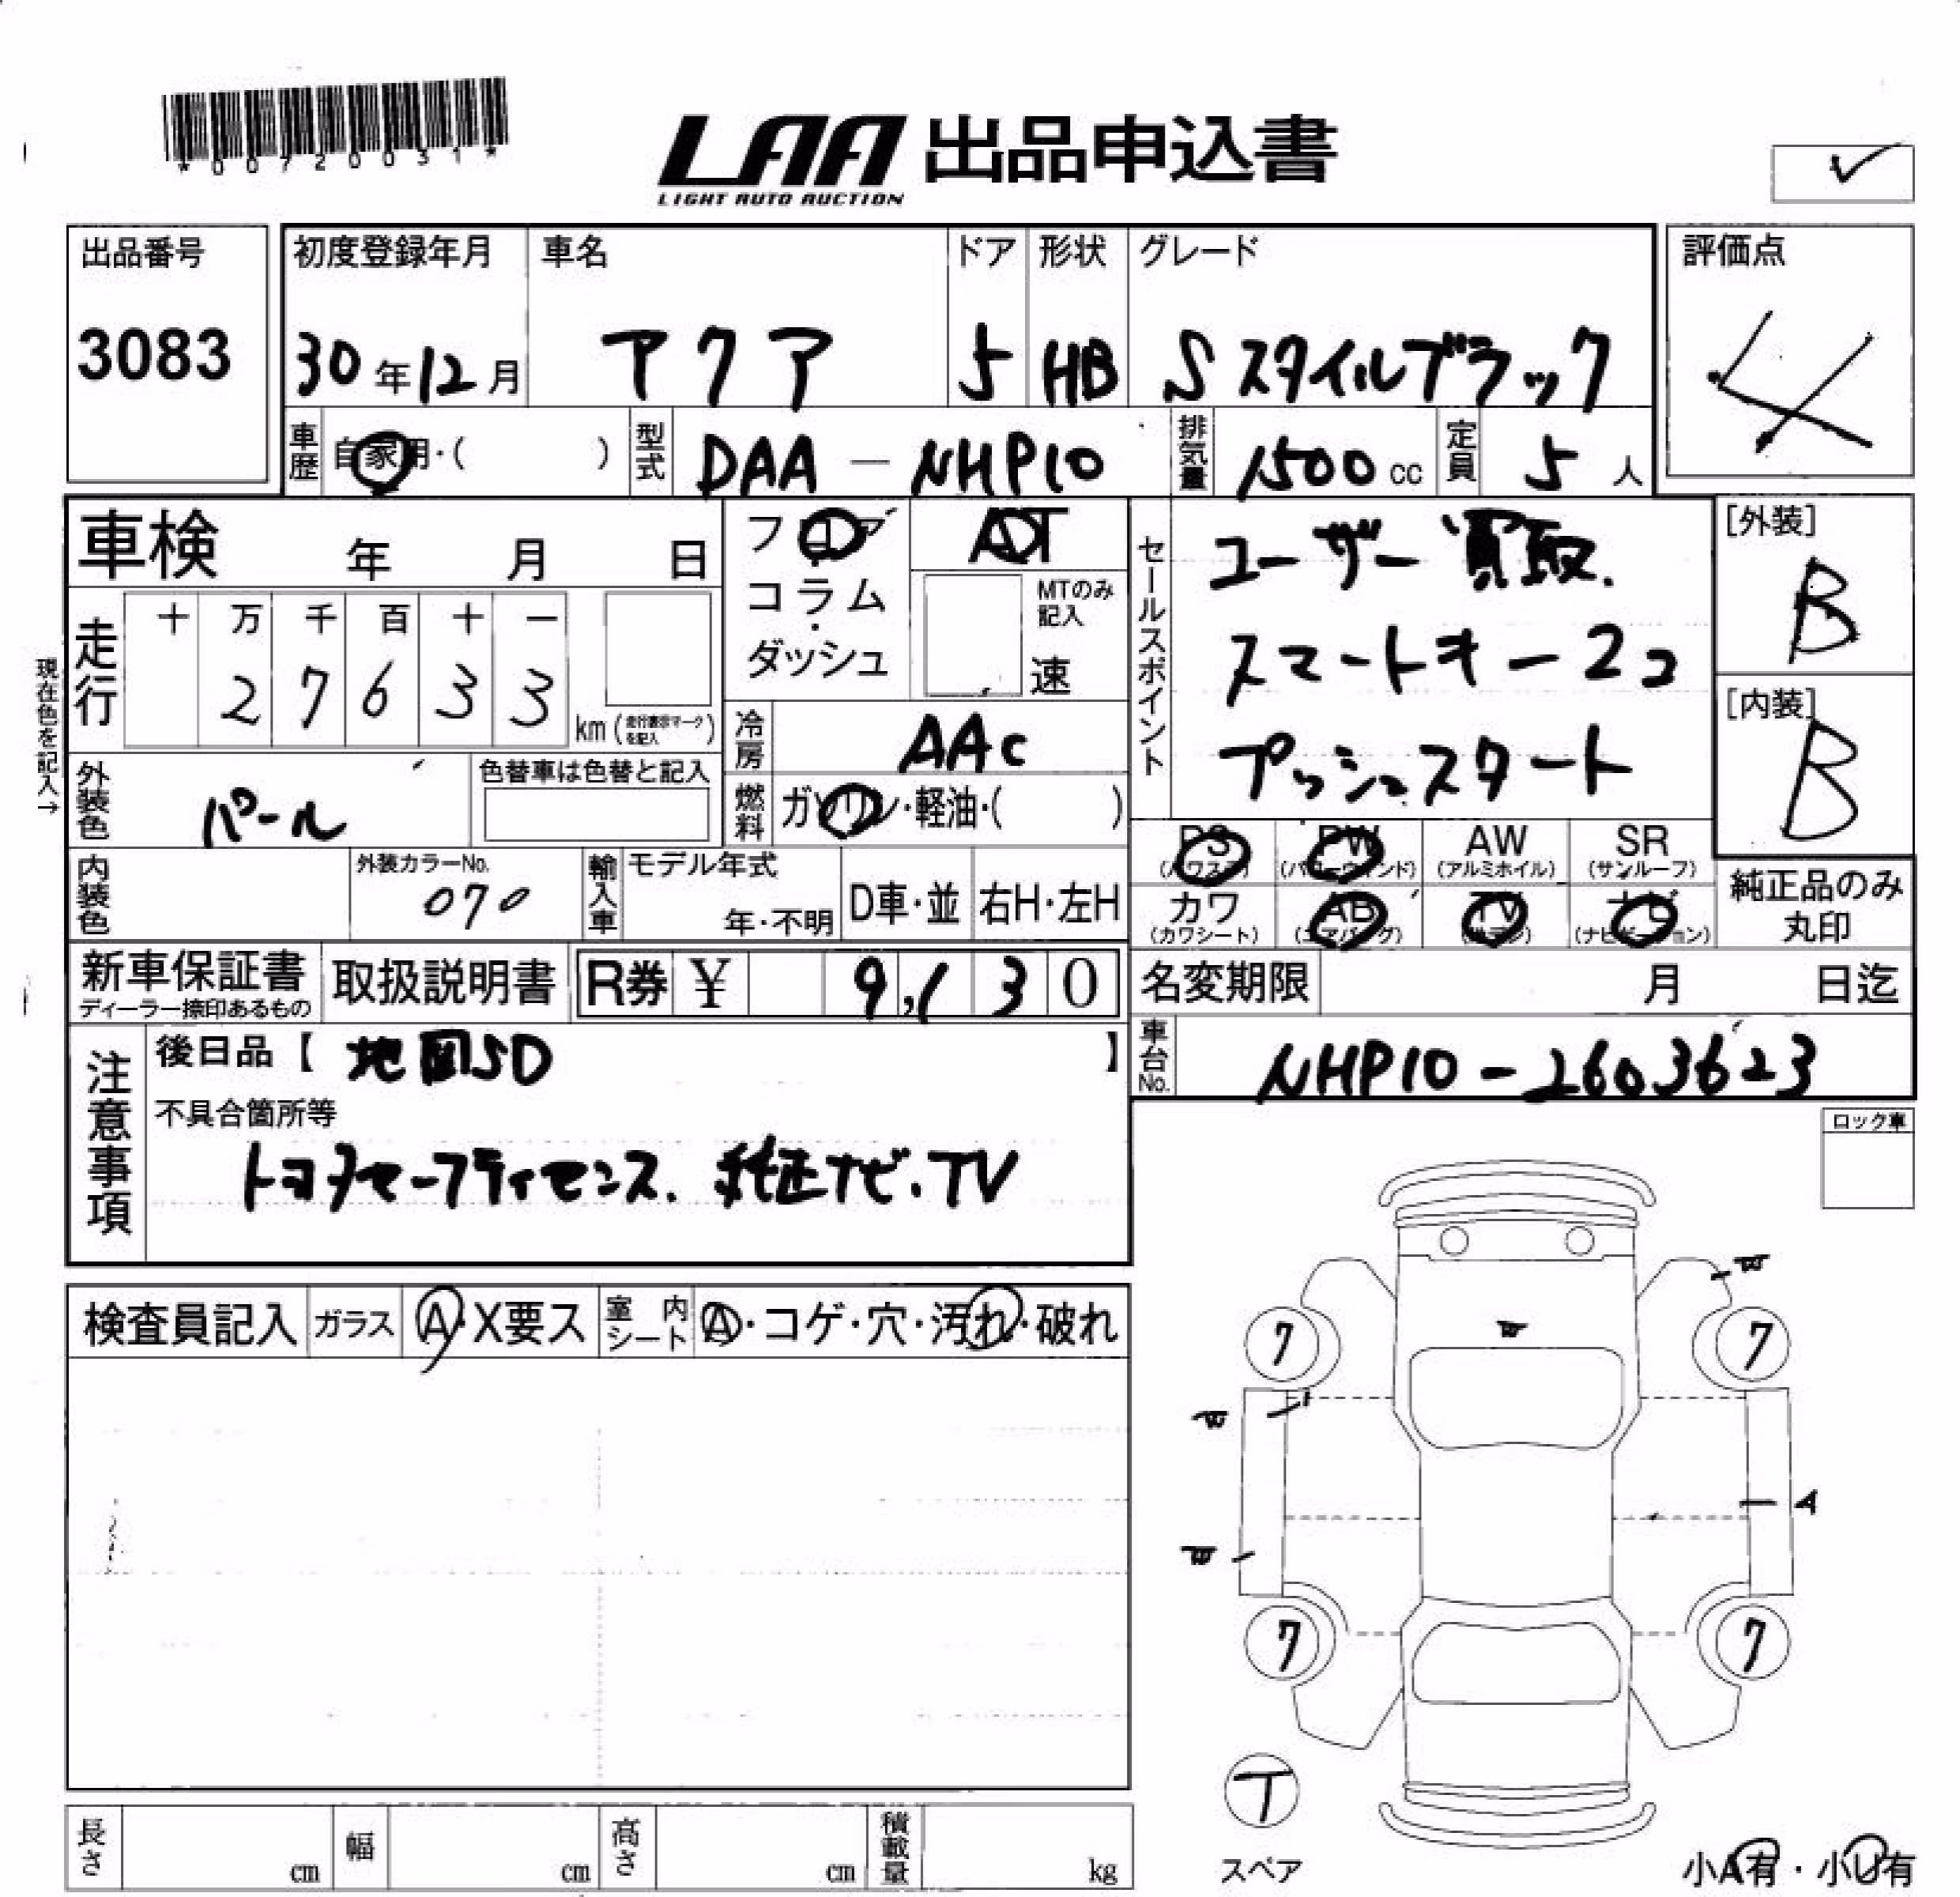 *00720031*
LAA 出品申込書
LIGHT AUTO AUCTION
出品番号
3083
初度登録年月
30年12月
車名
アクア
ドア
5
形状
HB
グレード
Sスタイルブラック
評価点
4
車歴 自家用・( )
型式 DAA-NHP10
排気量 1500cc
定員 5人
車検 年 月 日
フロア
コラム
ダッシュ
AT
MTのみ記入
速
セールスポイント
ユーザー買取.
スマートキー2コ
プッシュスタート
[外装]
B
[内装]
B
現在色を記入→
走行
十 万 千 百 十 一
2 7 6 3 3
km(走行表示マークを記入)
冷房 AAC
燃料 ガソリン・軽油・( )
外装色 パール
色替車は色替と記入
内装色
外装カラーNo.
070
輸入車
モデル年式
年・不明
D車・並
右H・左H
PS (パワステ)
PW (パワーウィンド)
AW (アルミホイル)
SR (サンルーフ)
カワ (カワシート)
AB (エアバッグ)
TV (テレビ)
ナビ (ナビゲーション)
純正品のみ
丸印
新車保証書
ディーラー捺印あるもの
取扱説明書
R券 ¥ 9,130
名変期限 月 日迄
車台No. NHP10-2603623
注意事項
後日品【 地図SD 】
不具合箇所等
トヨタセーフティセンス. 純正ナビ.TV
ロック車
検査員記入
ガラス A・X要ス
室内シート A・コゲ・穴・汚れ・破れ
7
7
A
7
7
スペア
小A有・小U有
長さ cm
幅 cm
高さ cm
積載量 kg